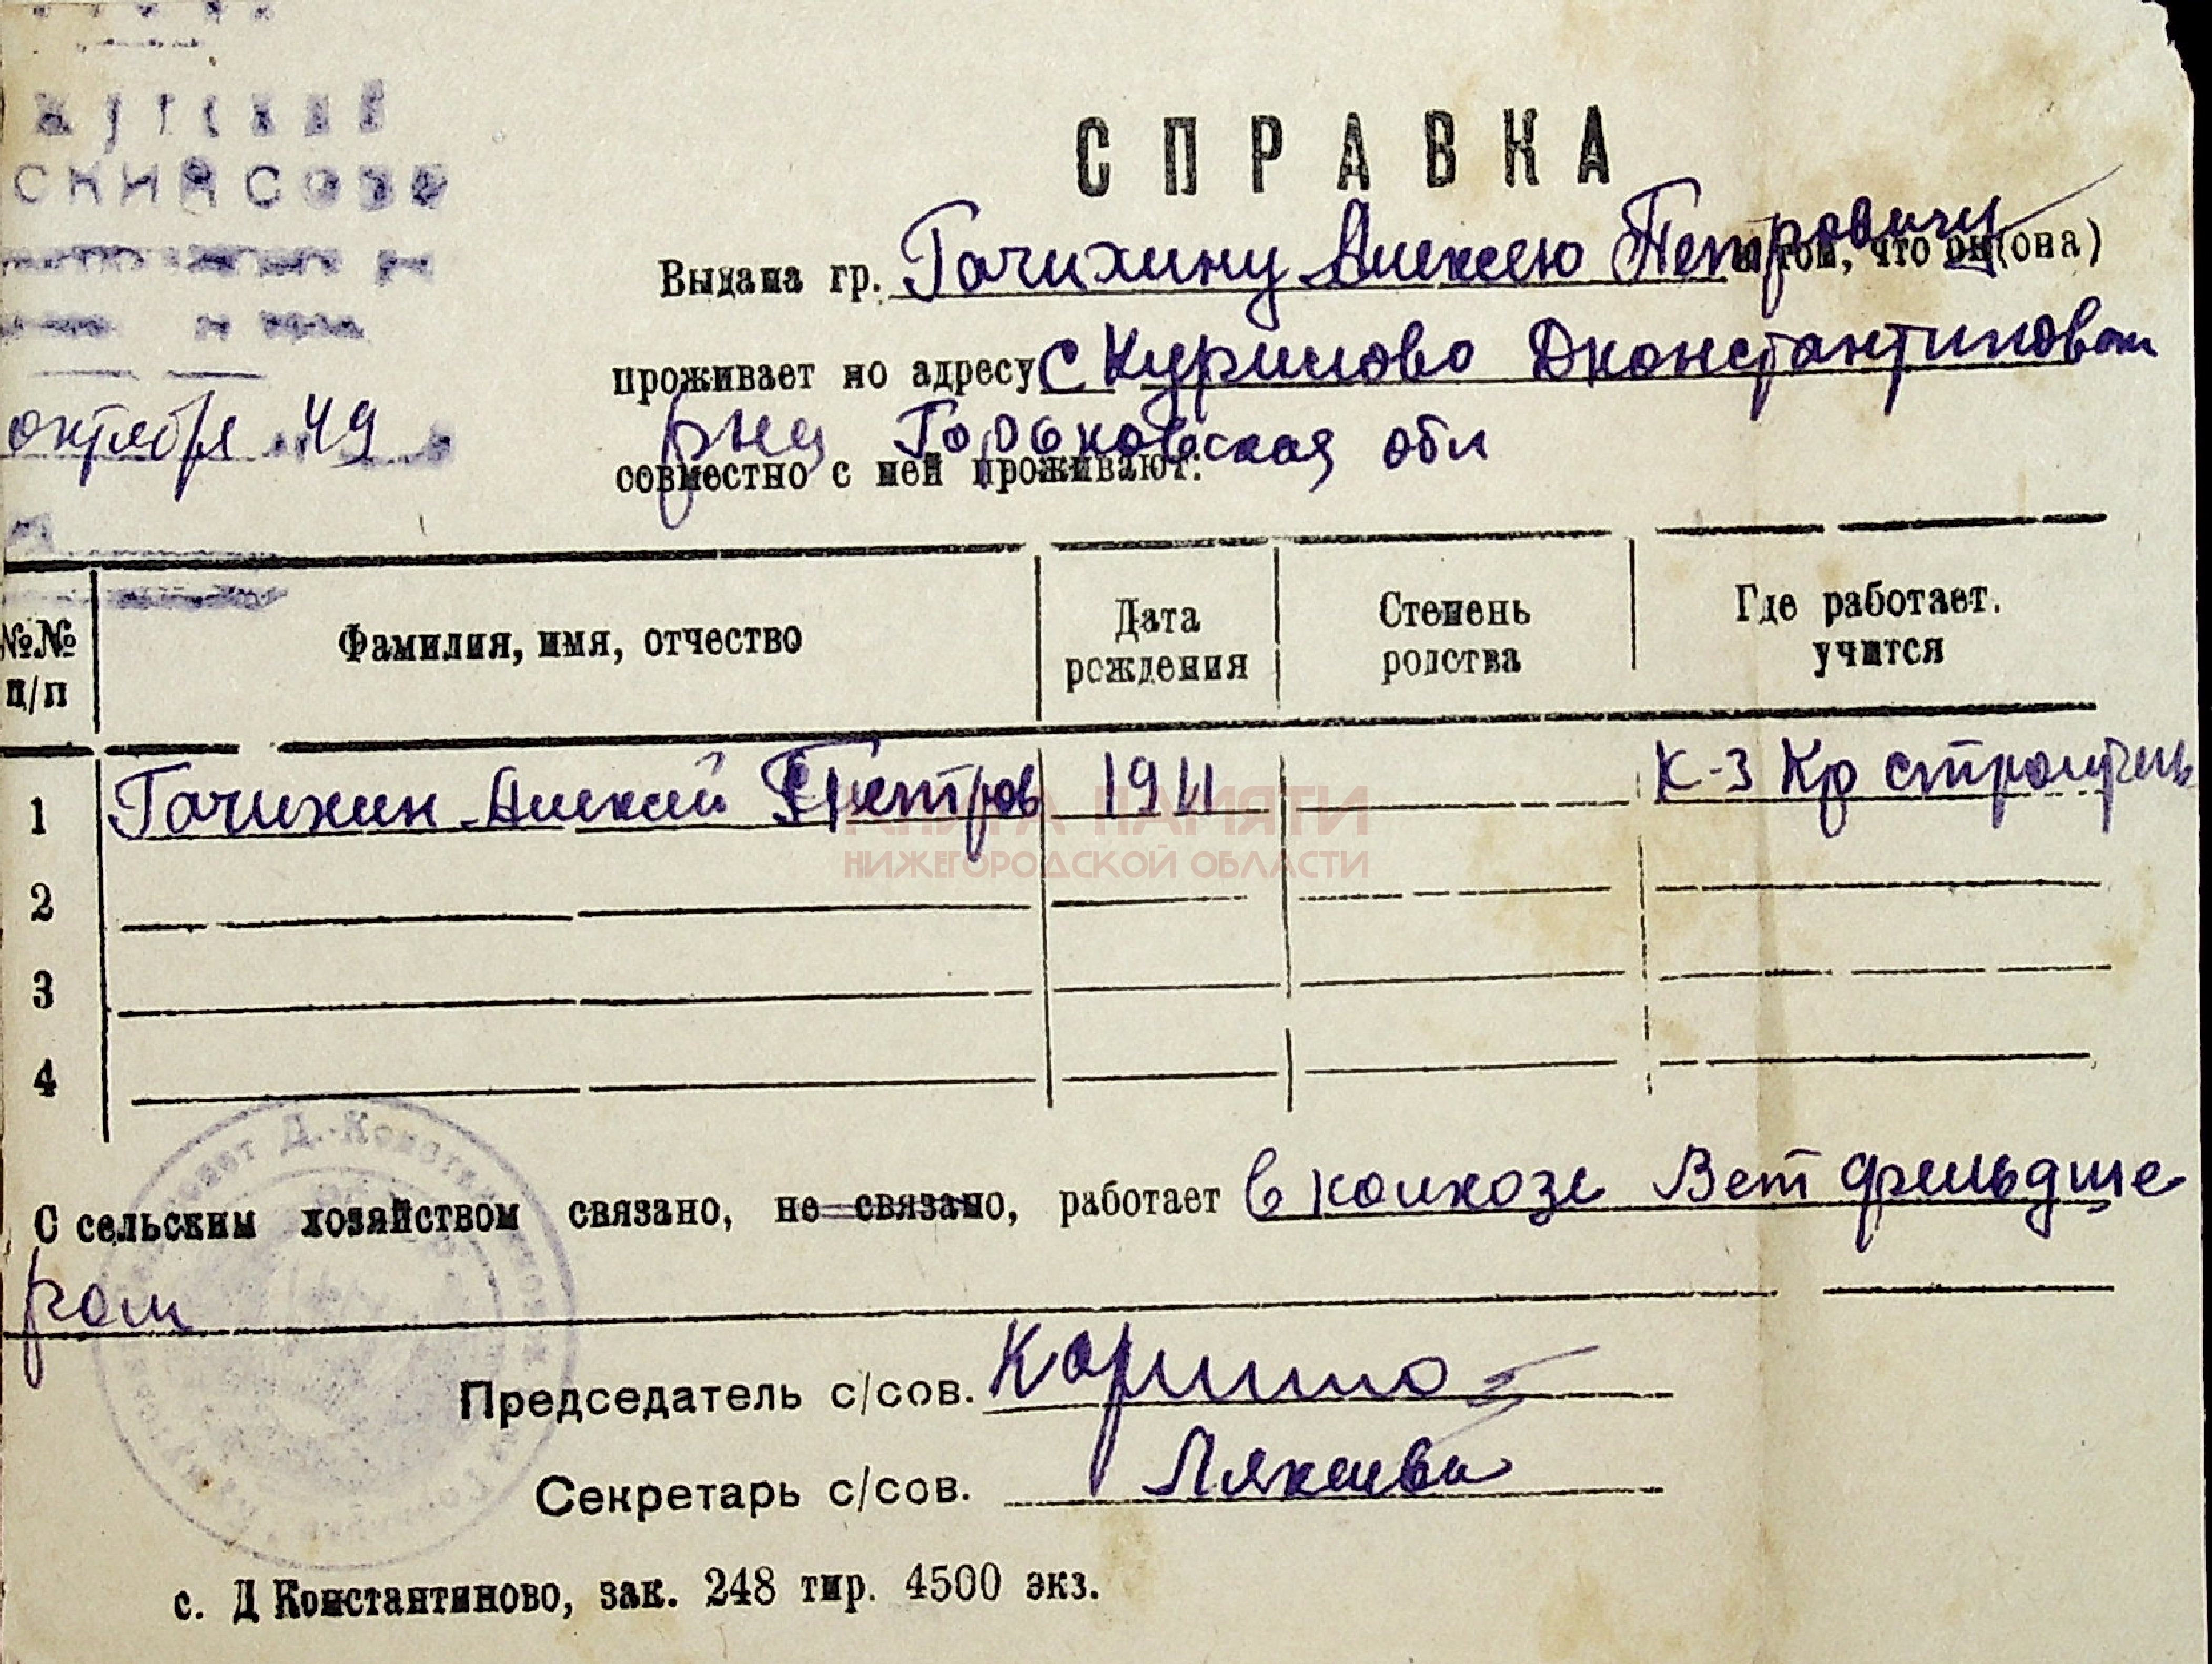 СПРАВКА
Выдана гр. Гочихину Алексею Петровичу о том, что он (она)
проживает по адресу с Курилово Дконстантиновск
рна Горьковская обл
совместно с ней проживают:
октября 49
№№ п/п
Фамилия, имя, отчество
Дата рождения
Степень родства
Где работает. учится
1 Гочихин Алексей Петров 1911 К-з Кр строитель
КНИГА ПАМЯТИ
НИЖЕГОРОДСКОЙ ОБЛАСТИ
2
3
4
С сельским хозяйством связано, не связано, работает в колхозе Вет фельдше
ром
Председатель с/сов.
Секретарь с/сов.
с. Д Константиново, зак. 248 тир. 4500 экз.